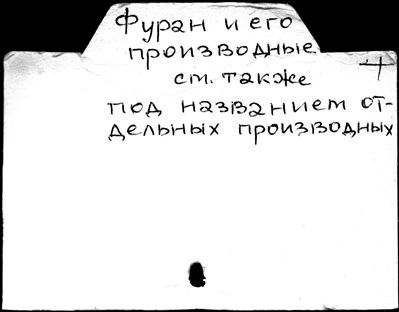 Фуран и его
производные
см. также
под названием от-
дельных производных